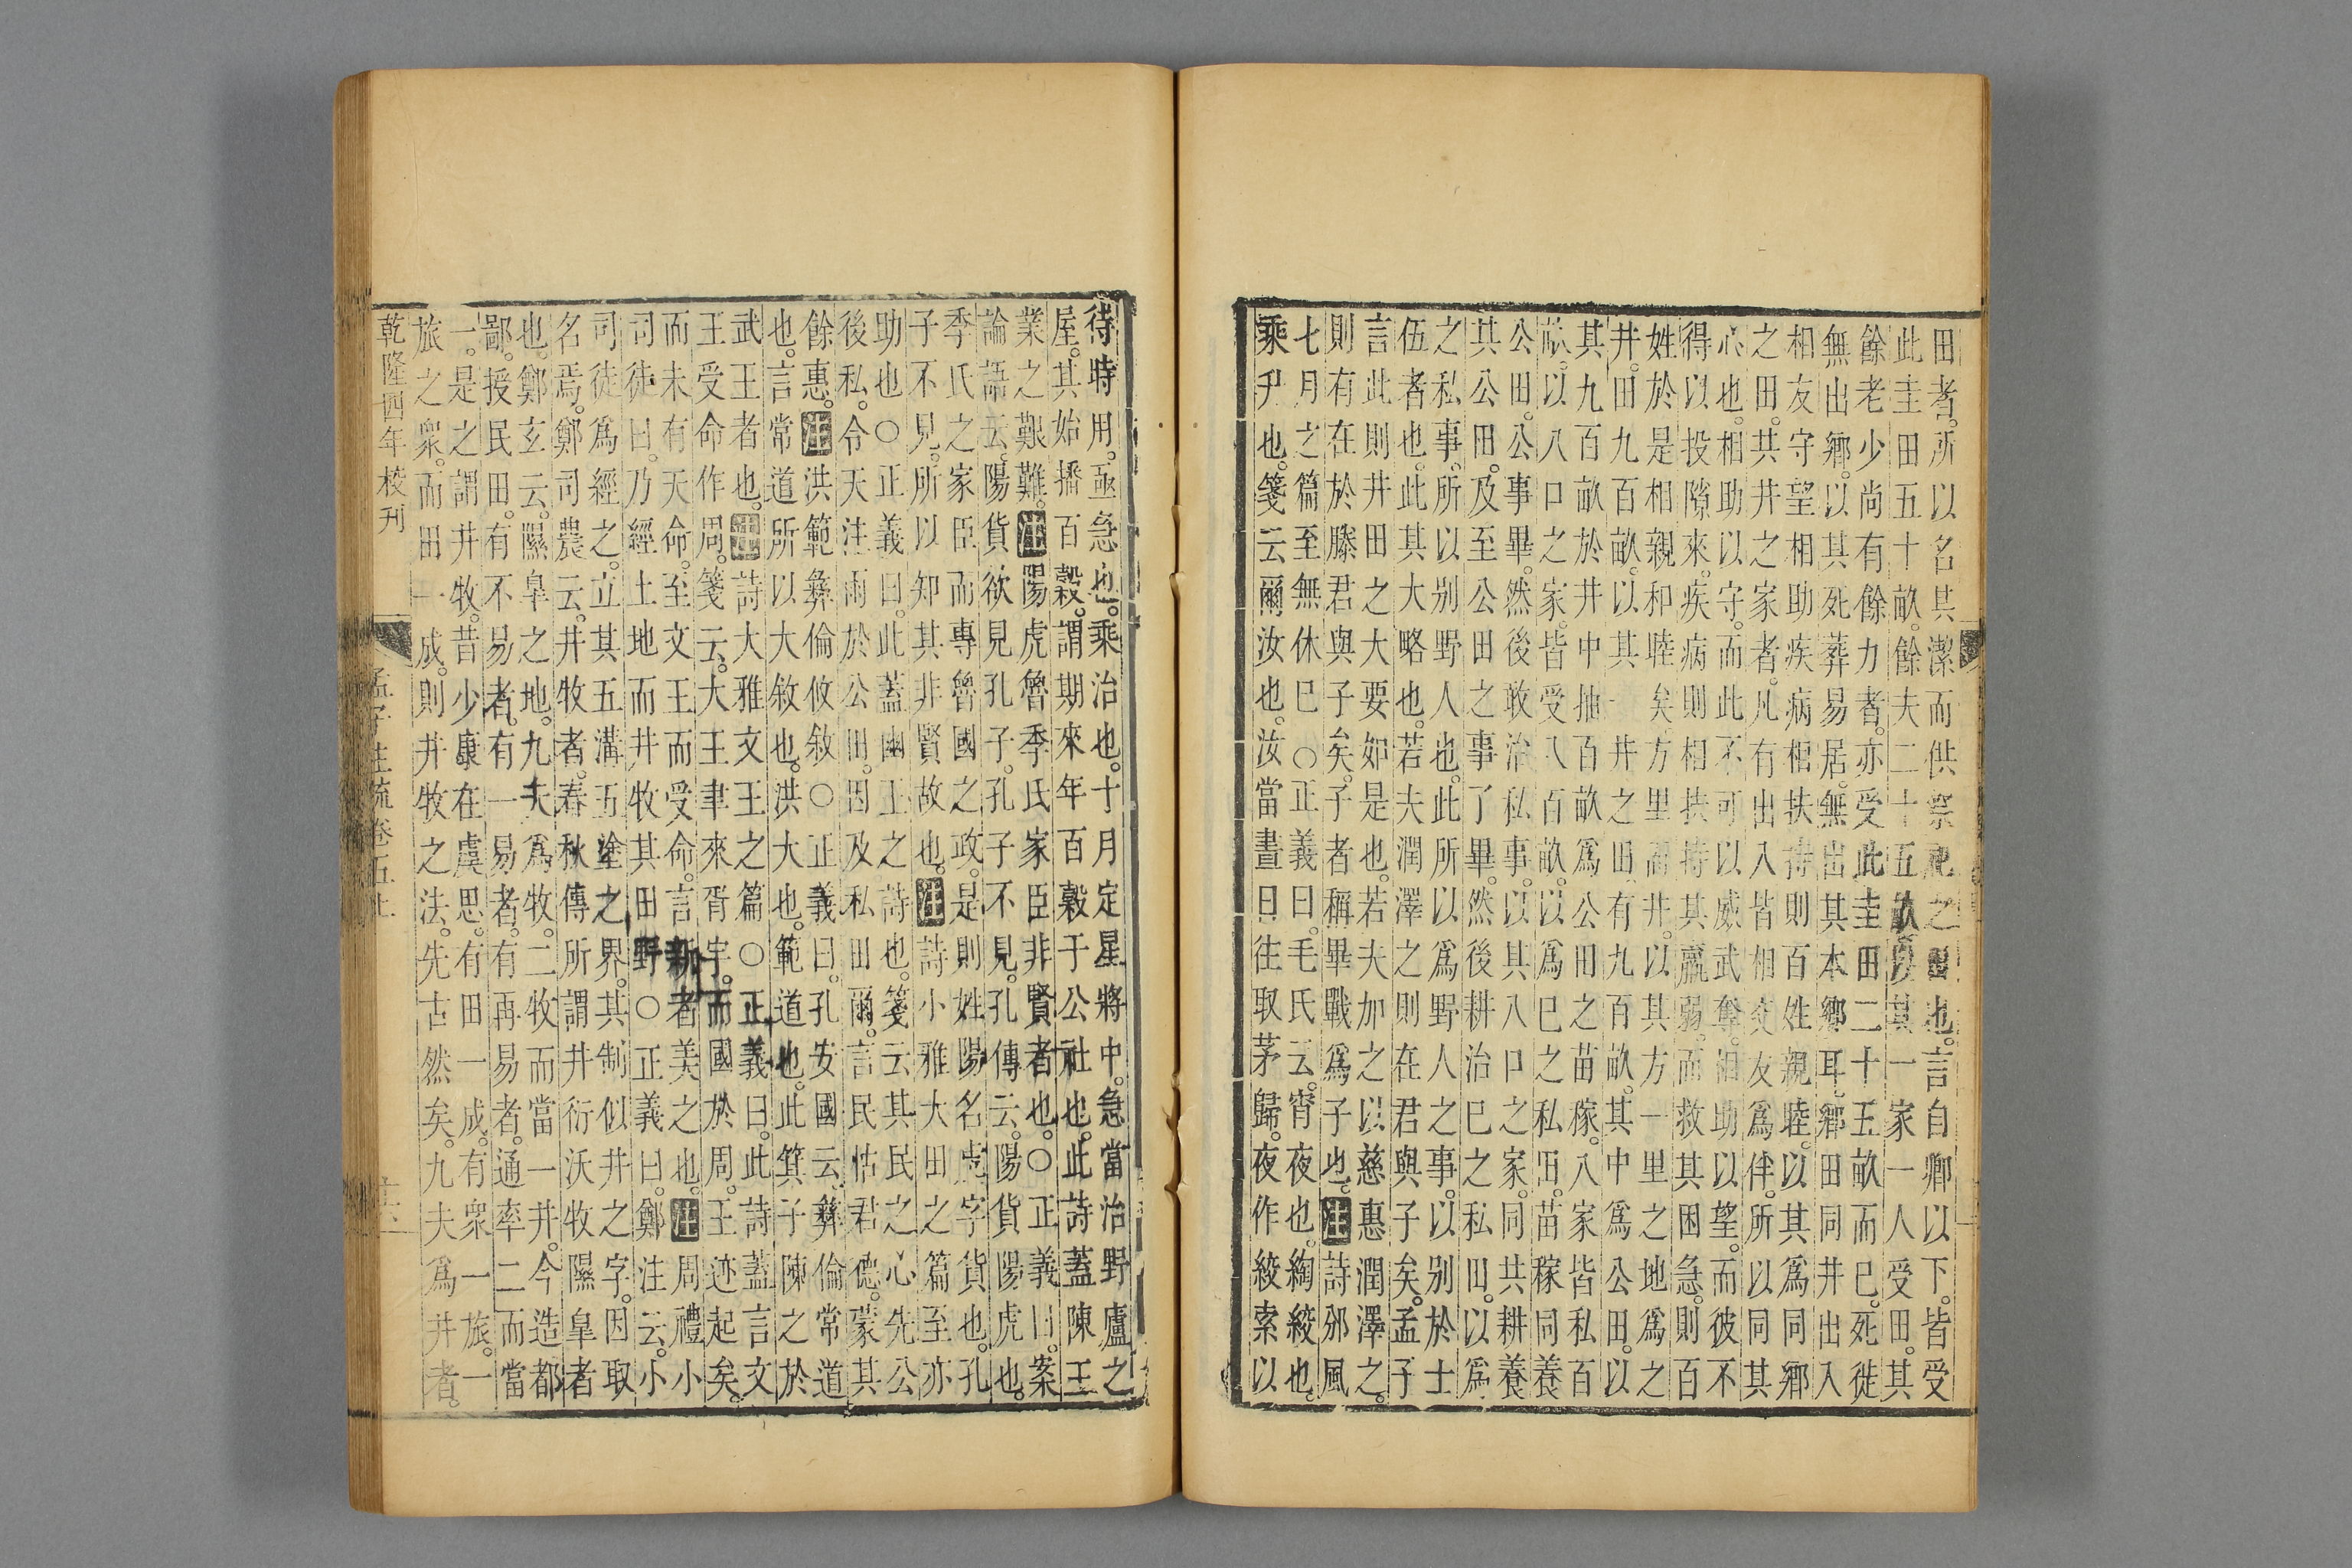 田者。所以名其潔而供祭祀之也。言自卿以下。皆受
此圭田五十畝。餘夫二十五畝。其一家一人受田。其
餘老少尚有餘力者。亦受此圭田二十五畝而已。死徙
無出鄉。以其死葬易居。無出其本鄉耳。鄉田同井出入
相友守望相助疾病相扶持則百姓親睦。以其爲同鄉
之田。共井之家者。凡有出入皆相交友爲伴。所以同其
心也。相助以守。而此不可以威武奪。相助以望。而彼不
得以投隙來。疾病則相扶持其羸弱。而救其困急。則百
姓於是相親和睦矣。方里謂井。以其方一里之地爲之
井。田九百畝。以其一井之田有九百畝。其中爲公田。以
其九百畝於井中抽百畝爲公田之苗稼。八家皆私百
畝。以八口之家。皆受八百畝。以爲已之私田。苗稼同養
公田。公事畢。然後敢治私事。以其八口之家。同共耕養
其公田。及至公田之事了畢。然後耕治已之私田。以爲
之私事。所以別野人也。此所以爲野人之事。以別於士
伍者也。此其大略也。若夫潤澤之則在君與子矣。孟子
言此則井田之大要如是也。若夫加之以慈惠潤澤之。
則有在於滕君與子矣。子者稱畢戰爲子也。注詩邠風
七月之篇至無休已○正義曰。毛氏云。宵夜也。綯絞也。
乘升也。箋云爾汝也。汝當晝日往取茅歸。夜作絞索以
待時用。亟急也。乘治也。十月定星將中。急當治野廬之
屋。其始播百穀。謂期來年百穀于公社也。此詩蓋陳王
業之艱難。注陽虎魯季氏家臣非賢者也。○正義曰。案
論語云。陽貨欲見孔子。孔子不見。孔傳云。陽貨陽虎也。
季氏之家臣而專魯國之政。是則姓陽名虎字貨也。孔
子不見。所以知其非賢故也。注詩小雅大田之篇至亦
助也○正義曰。此蓋幽王之詩也。箋云其民之心先公
後私。令天注雨於公田。因及私田爾。言民怙君德。蒙其
餘惠。注洪範彝倫攸敘○正義曰。孔安國云。彝倫常道
也。言常道所以大敘也。洪大也。範道也。此箕子陳之於
武王者也。注詩大雅文王之篇○正義曰。此詩蓋言文
王受命作周。箋云。大王聿來胥宇。而國於周。王迹起矣。
而未有天命。至文王而受命。言新者美之也。注周禮小
司徒曰。乃經土地而井牧其田野○正義曰。鄭注云。小
司徒爲經之。立其五溝五塗之界。其制似井之字。因取
名焉。鄭司農云。井牧者。春秋傳所謂井衍沃牧隰皐者
也。鄭玄云。隰皐之地。九夫爲牧。二牧而當一井。今造都
鄙。授民田。有不易者。有一易者。有再易者。通率二而當
一。是之謂井牧。昔少康在虞思。有田一成。有衆一旅。一
旅之衆。而田一成。則井牧之法。先古然矣。九夫爲井者。
乾隆四年校刊 孟子注疏卷五上